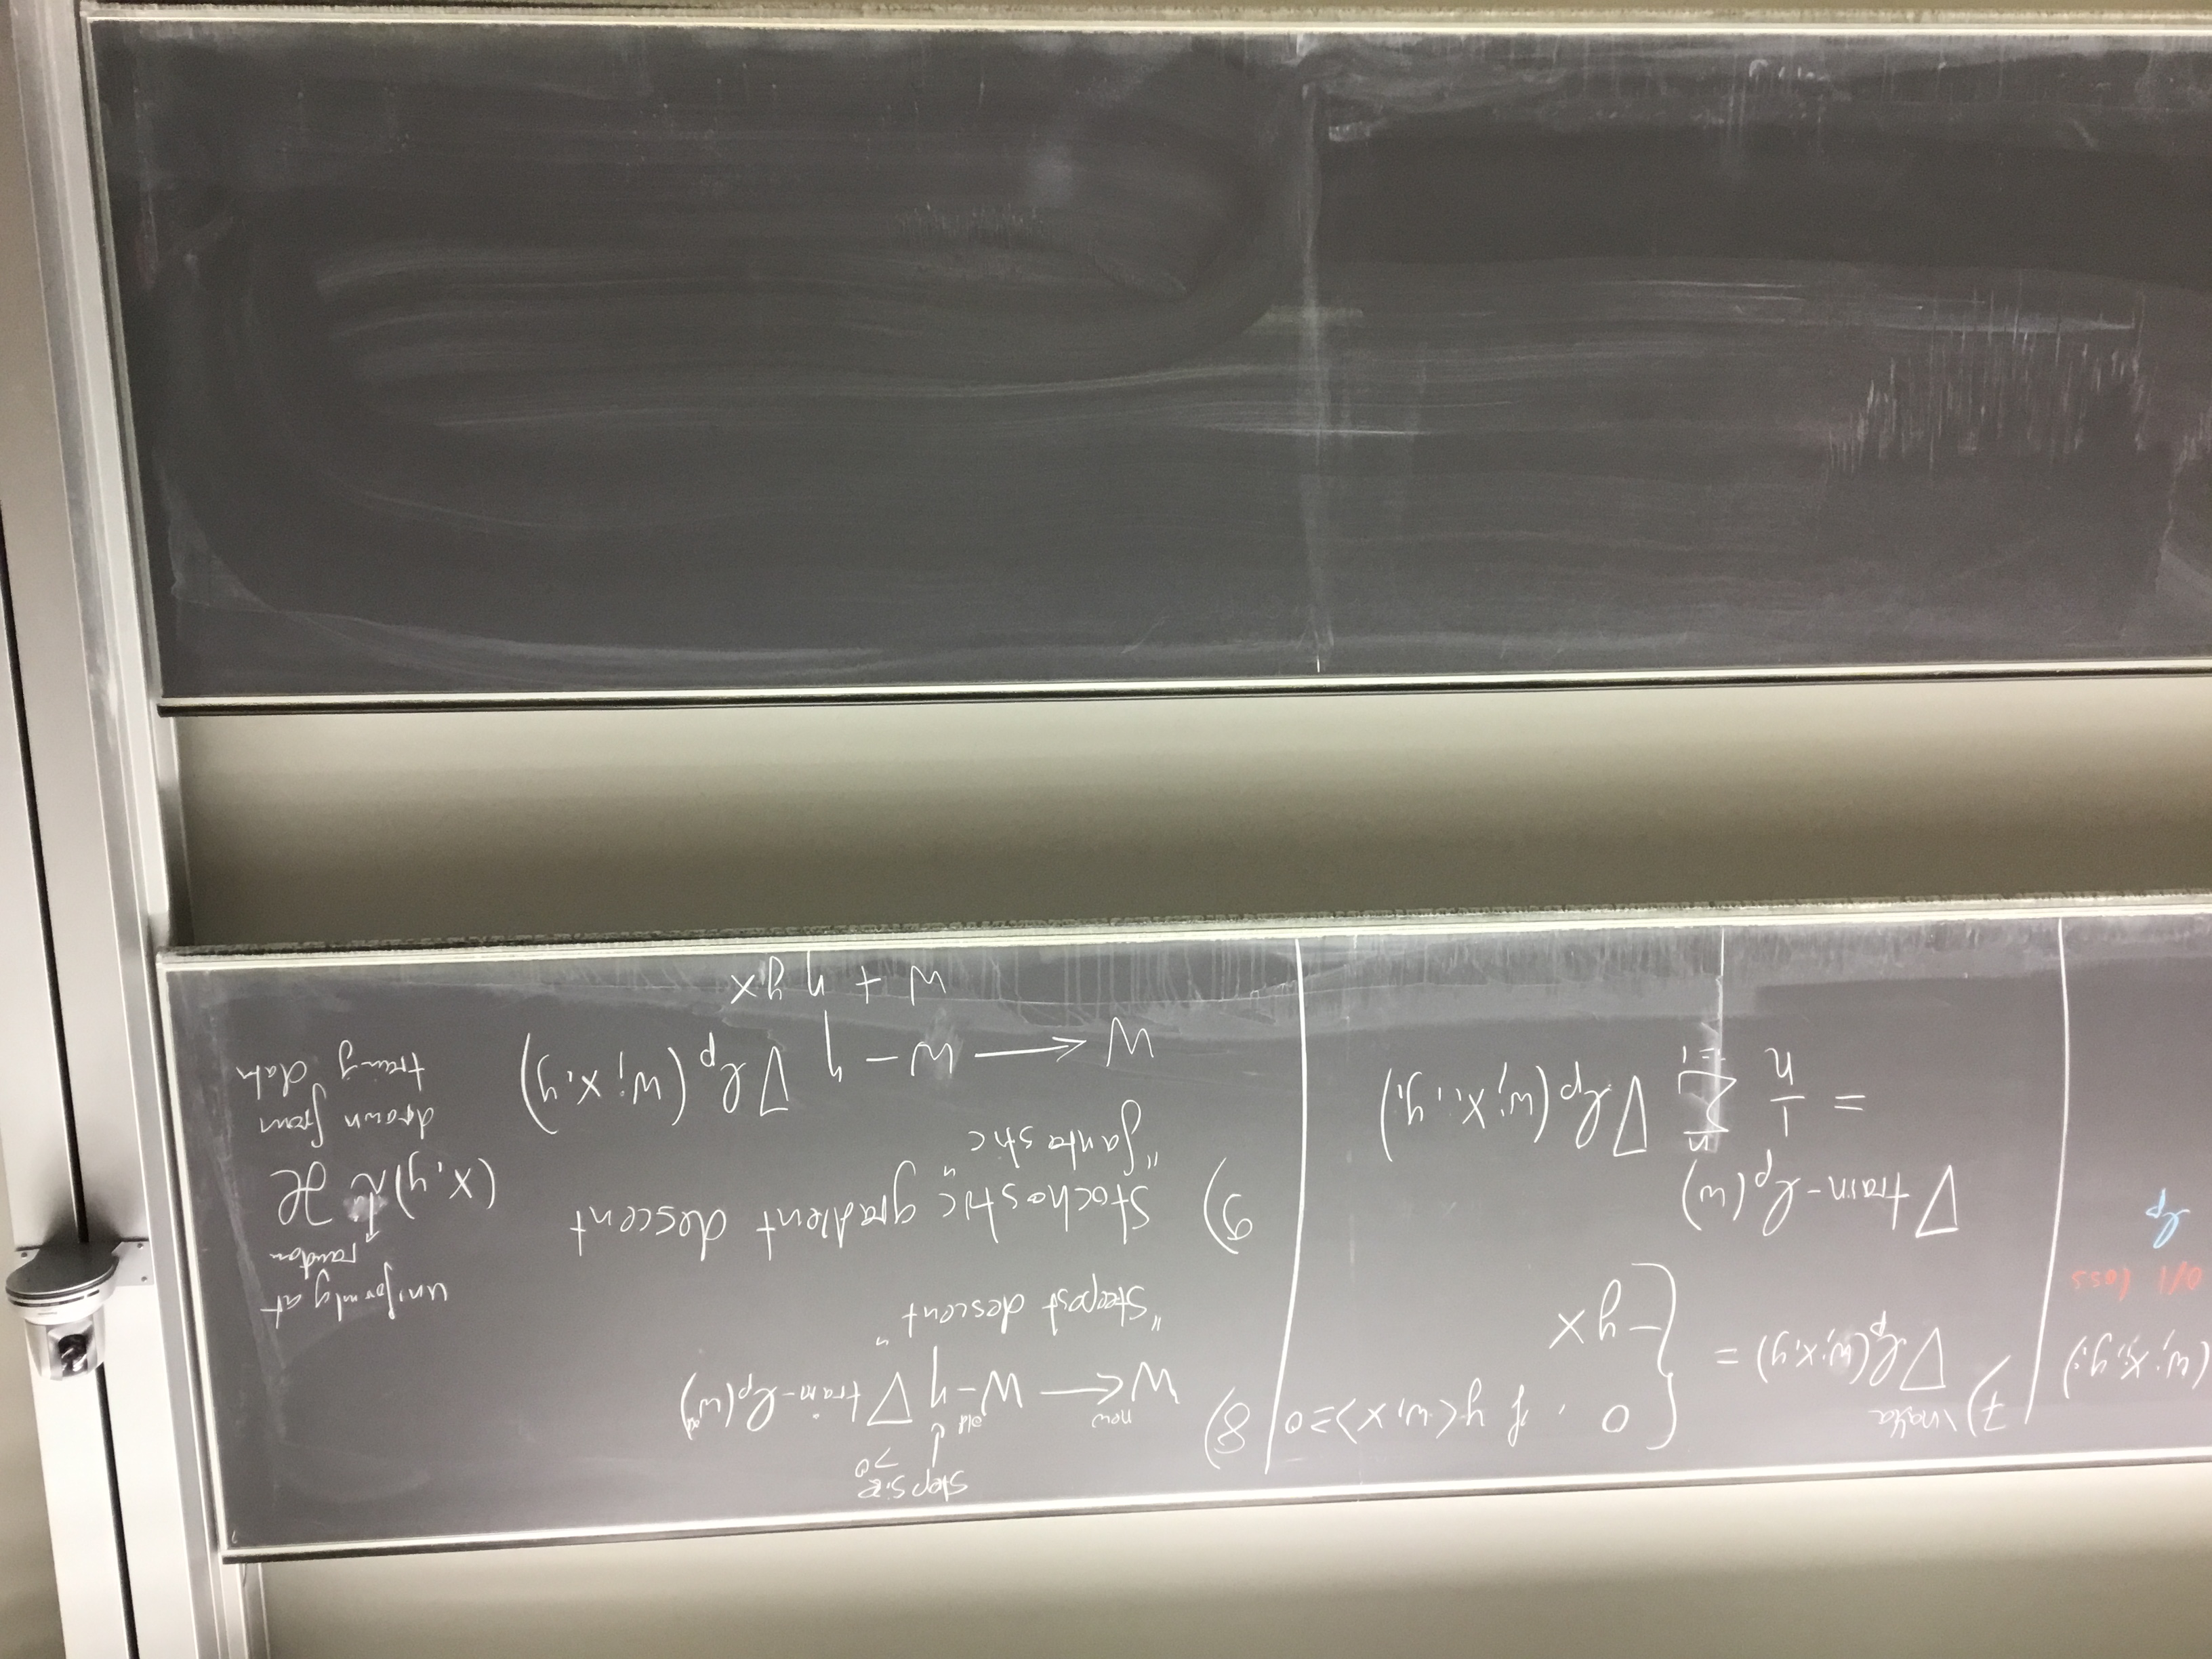 (w; xᵢ, yᵢ)
0/1 loss
ℓₚ
7) \nabla
∇ℓₚ(w; x, y) = { 0 , if y⟨w, x⟩ ≥ 0
-yx
∇ train-ℓₚ(w)
= 1/n ∑ᵢ₌₁ⁿ ∇ℓₚ(w; xᵢ, yᵢ)
step size
> 0
↓
8) wⁿᵉʷ ← wᵒˡᵈ - η ∇ train-ℓₚ(wᵒˡᵈ)
"Steepest descent"
9) Stochastic gradient descent
"fantastic"
w ← w - η ∇ℓₚ(w; x, y)
w + η yx
uniformly at
random
↑
(x, y) ~
drawn from
traing data